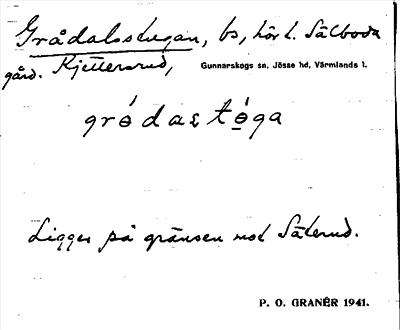 Grådalsstugan, bs, hör t. Sälboda
gård. Kjettersrud, Gunnarskogs sn, Jösse hd, Värmlands l.
grό̠daʟtό̠ga
Ligger på gränsen mot Säterud.
P. O. GRANÉR 1941.